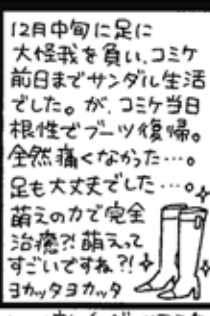 12月中旬に足に
大怪我を負い、コミケ
前日までサンダル生活
でした。が、コミケ当日
根性でブーツ復帰。
全然痛くなかった…。
足も大丈夫でした…。
萌えの力で完全
治癒?!萌えって
すごいですね?!
ヨカッタヨカッタ